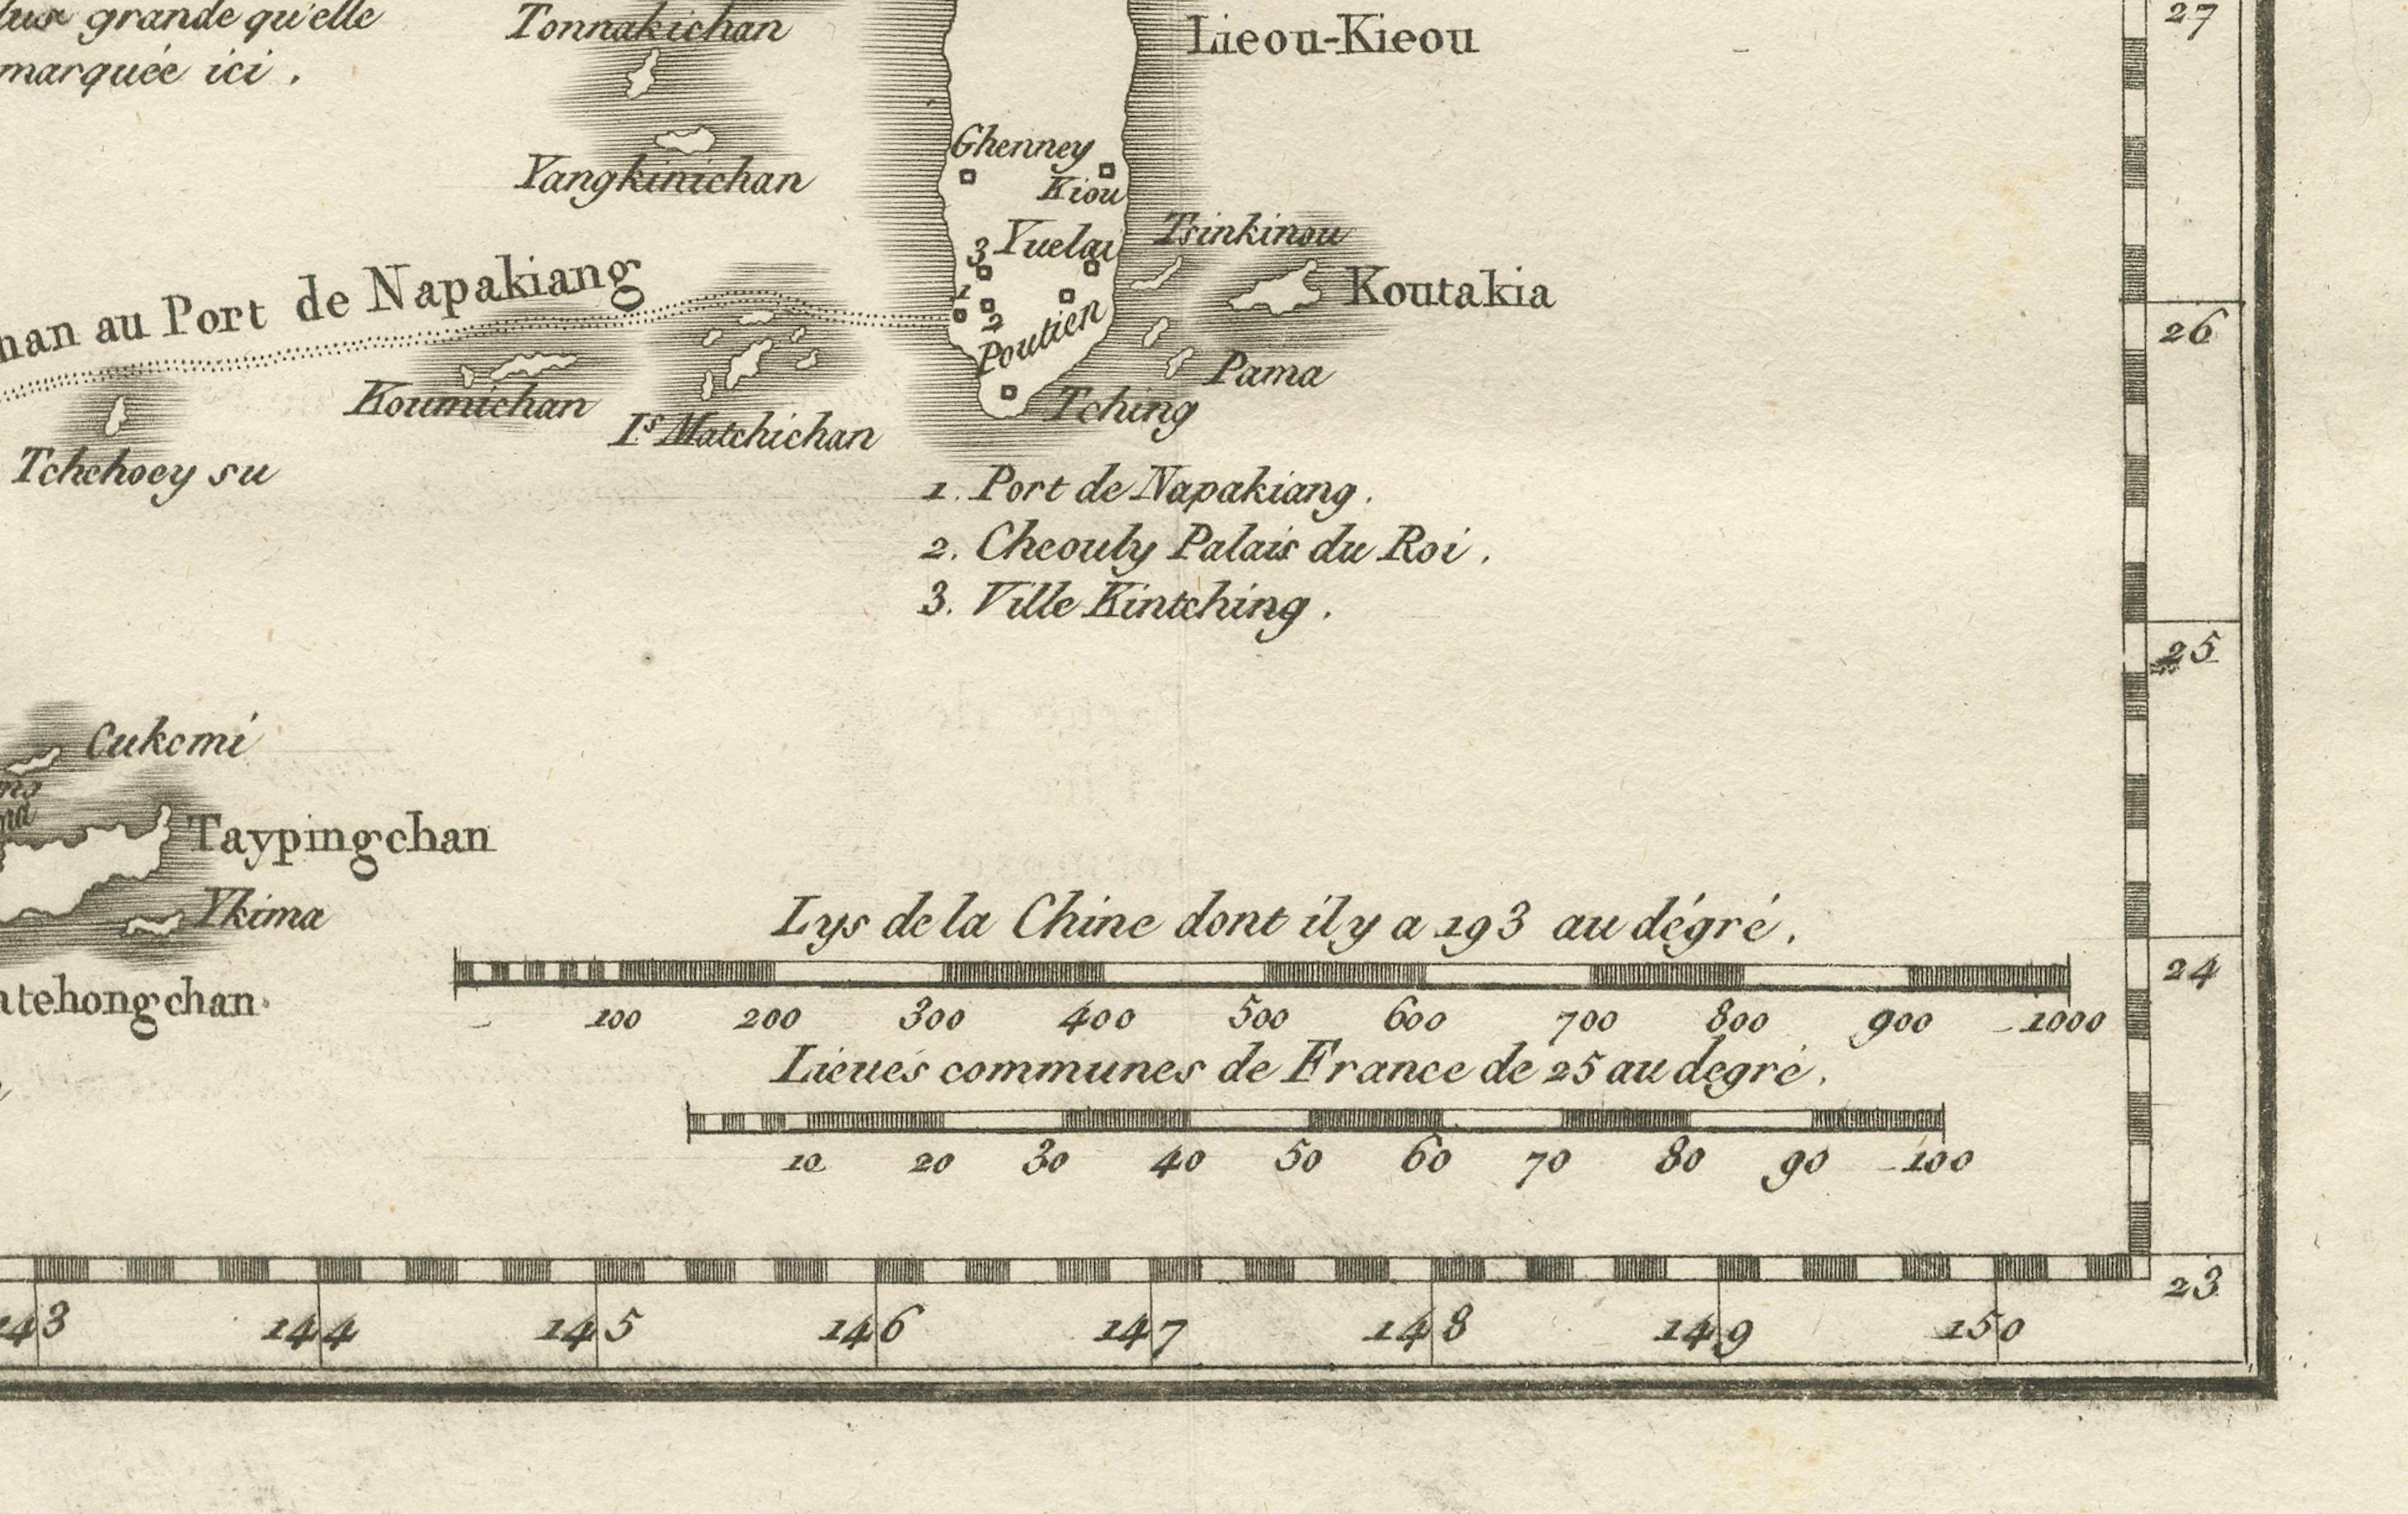 grande qu'elle
marquée ici .
Tonnakichan
Lieou-Kieou
27
Yangkinichan
Ghenney
Kiou
3 Yuelai
Tsinkinou
au Port de Napakiang
1
2
Poutien
Koutakia
26
Koumichan
Is Matchichan
Pama
Tching
Tchehoey su
1. Port de Napakiang.
2. Cheouly Palais du Roi.
3. Ville Kintching.
25
Cukemi
Taypingchan
Ykima
Lys de la Chine dont il y a 193 au dégré.
24
100 200 300 400 500 600 700 800 900 1000
Lieues communes de France de 25 au degré.
10 20 30 40 50 60 70 80 90 100
23
143 144 145 146 147 148 149 150